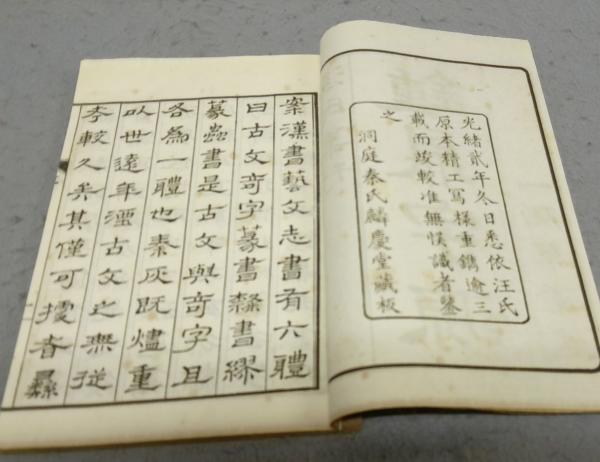 光緒貳年冬日悉依汪氏
原本精工寫樣重鐫逾三
載而竣較准無悞識者鑒
之
洞庭秦氏麟慶堂藏板
案漢書藝文志書有六體
曰古文奇字篆書隸書繆
篆蟲書是古文與奇字且
各為一體也秦灰既燼重
以世遠年湮古文之無從
考較久矣其僅可據者彝